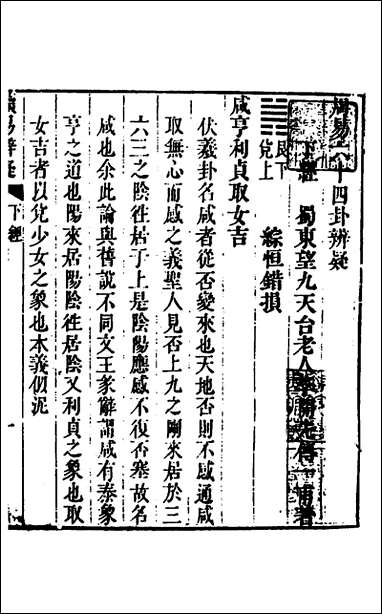 周易六十四卦辨疑
下經　蜀東望九天台老人
艮下
兌上　綜恒錯損
咸亨利貞取女吉
伏羲卦名咸者從否變來也天地否則不感通咸
取無心而感之義聖人見否上九之剛來居於三
六三之陰徃居于上是陰陽應感不復否塞故名
咸也余此論與舊說不同文王彖辭謂咸有泰象
亨之道也陽來居陽陰徃居陰又利貞之象也取
女吉者以兌少女之象也本義似泥
易辨疑　下經